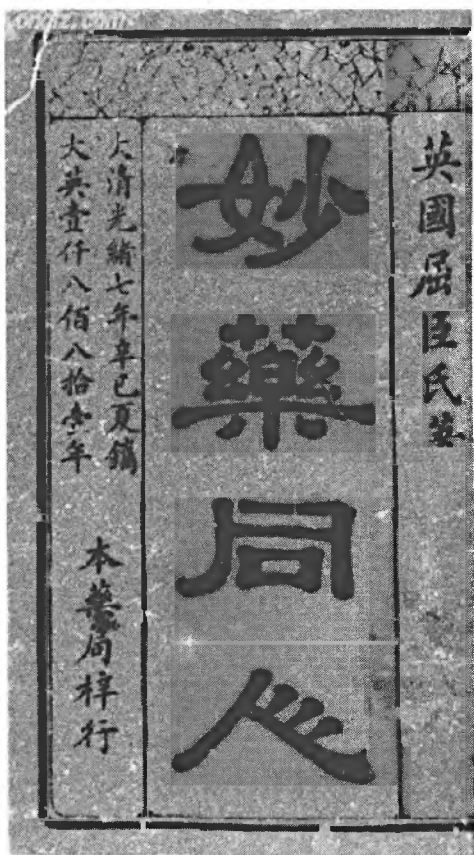 英國屈臣氏
妙藥同人
大清光緒七年辛巳夏鐫
大英壹仟八佰八拾壹年
本藥局梓行